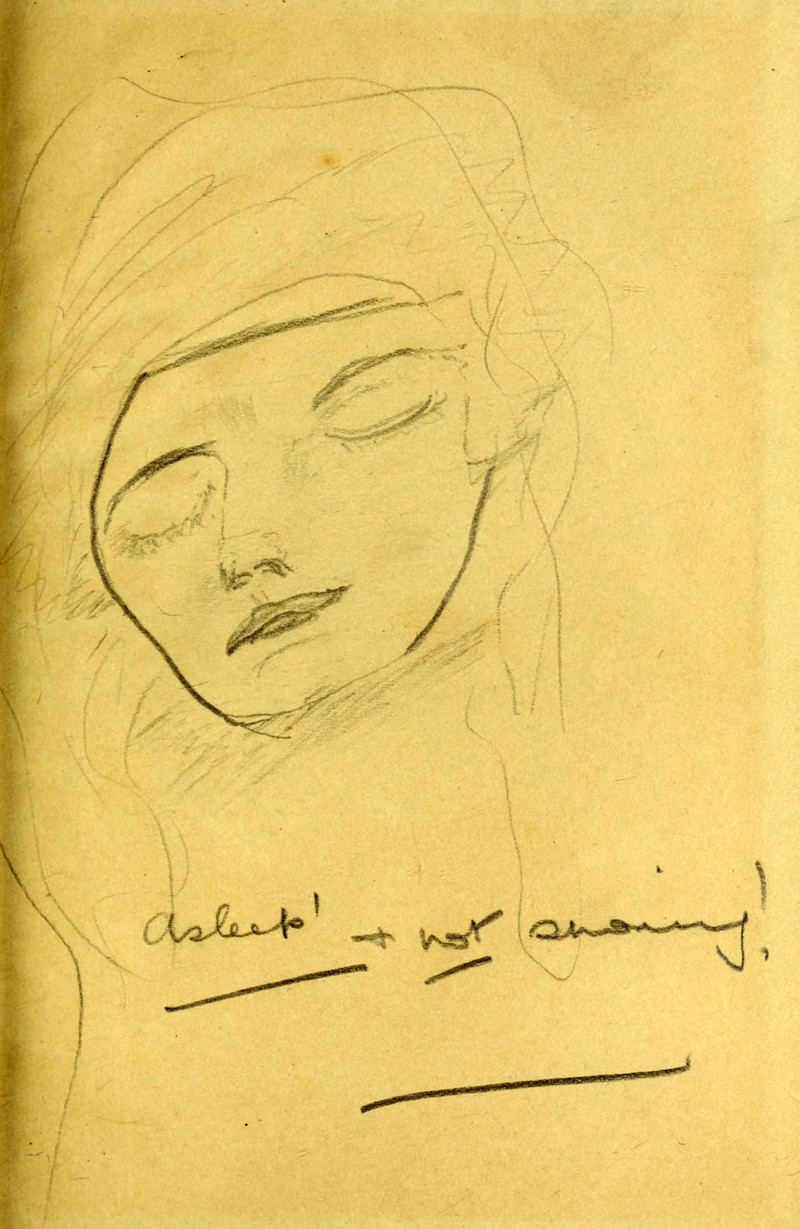 asleep! + not snoring!